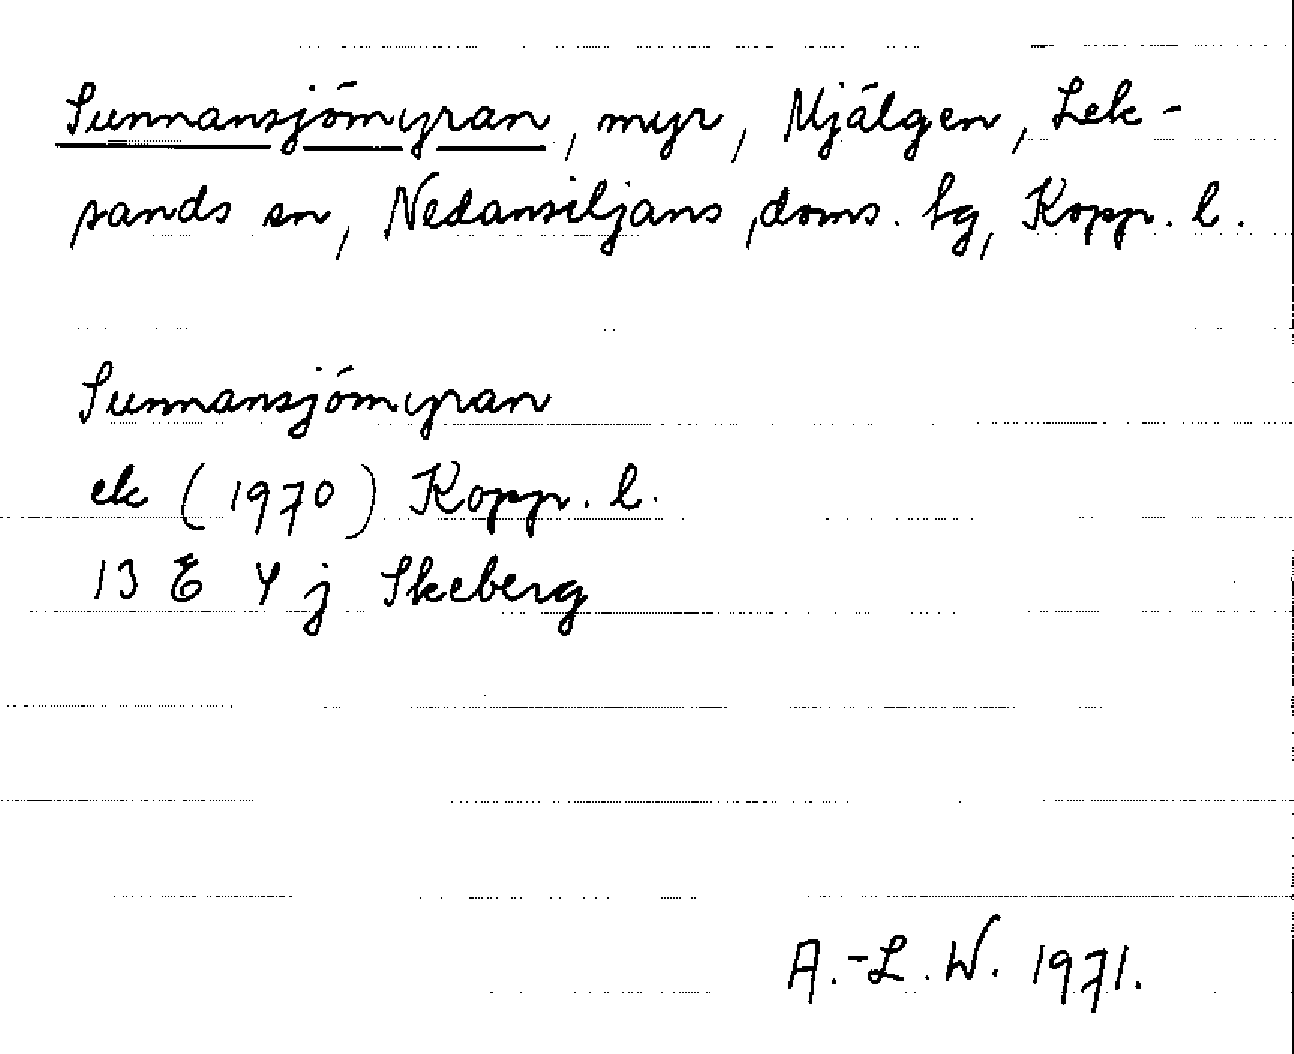 Sunnansjömyran, myr, Mjälgen, Lek-
sands sn, Nedansiljans doms. tg, Kopp. l.
Sunnansjömyran
ek (1970) Kopp. l.
13 E 4 j Skeberg
A.-L. W. 1971.